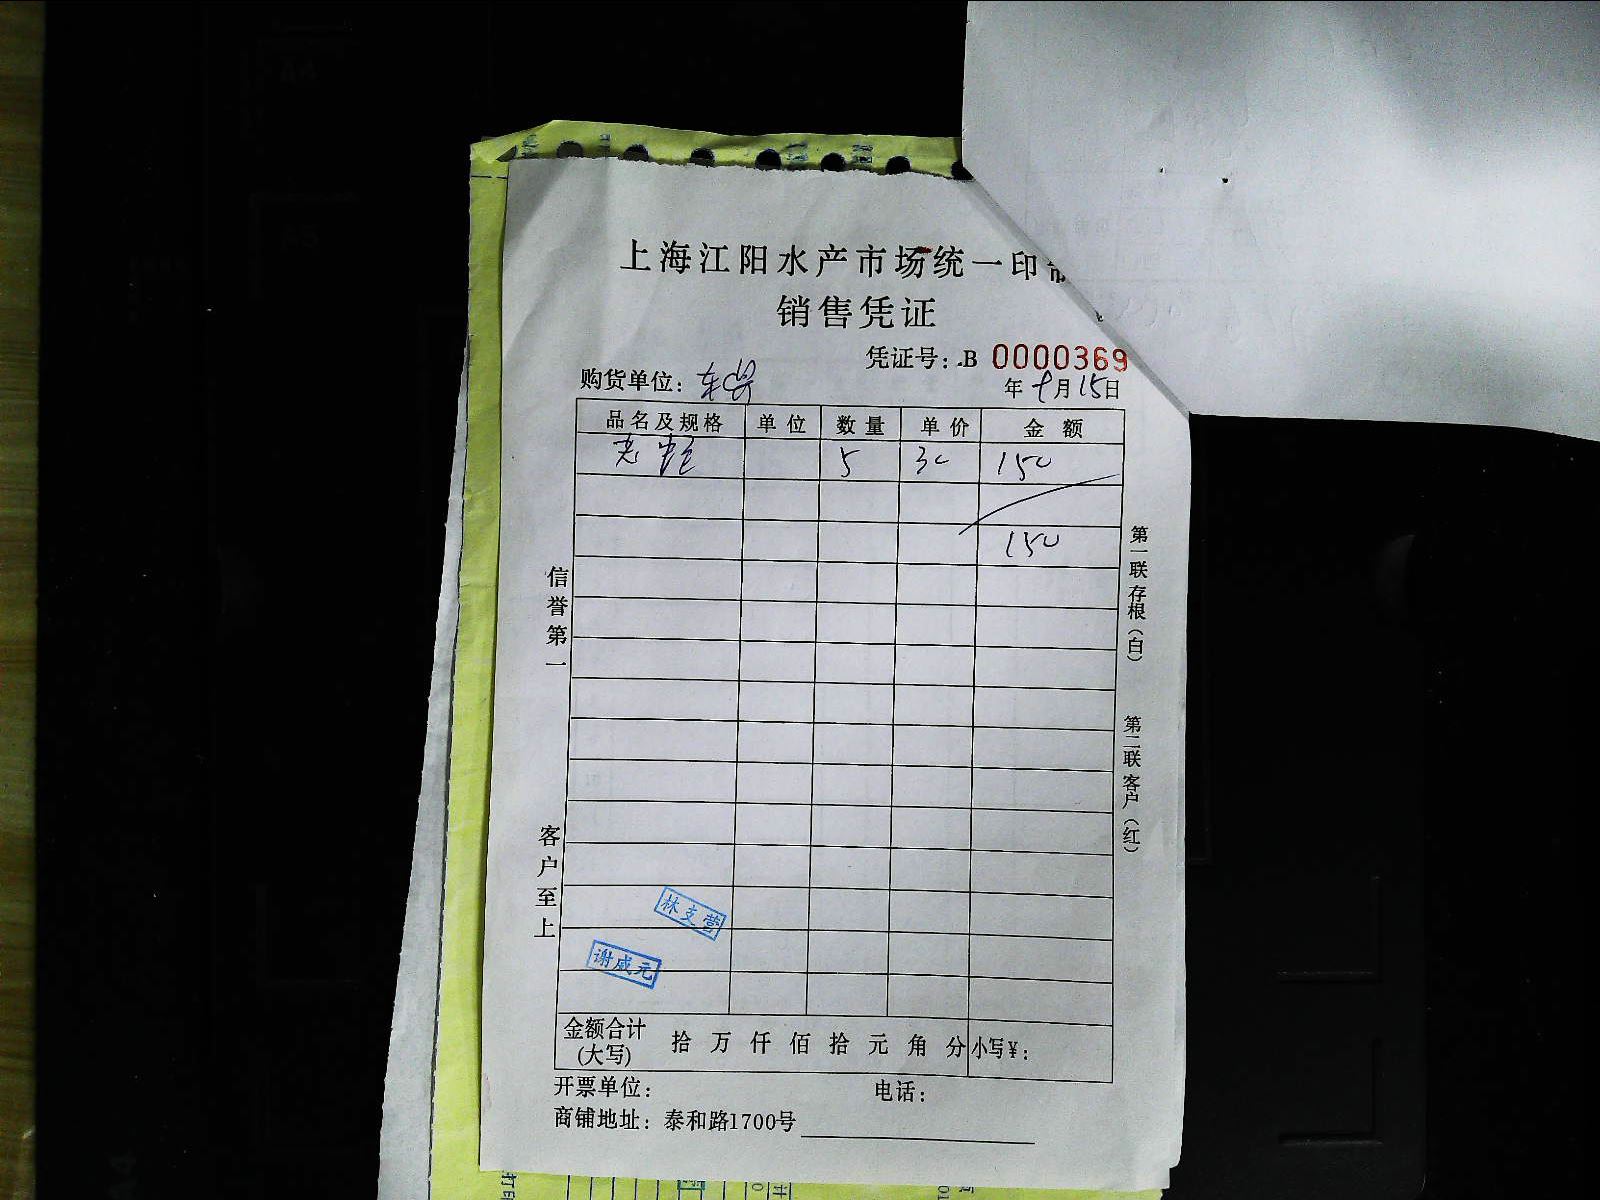 上海江阳水产市场统一印制
销售凭证
凭证号:.B 0000369
购货单位:
年 9月15日
品名及规格 单位 数量 单价 金额
5 30 150
150
信誉第一
客户至上
第一联存根(白)
第二联客户(红)
林支营
谢成元
金额合计(大写) 拾 万 仟 佰 拾 元 角 分 小写¥:
开票单位: 电话:
商铺地址: 泰和路1700号